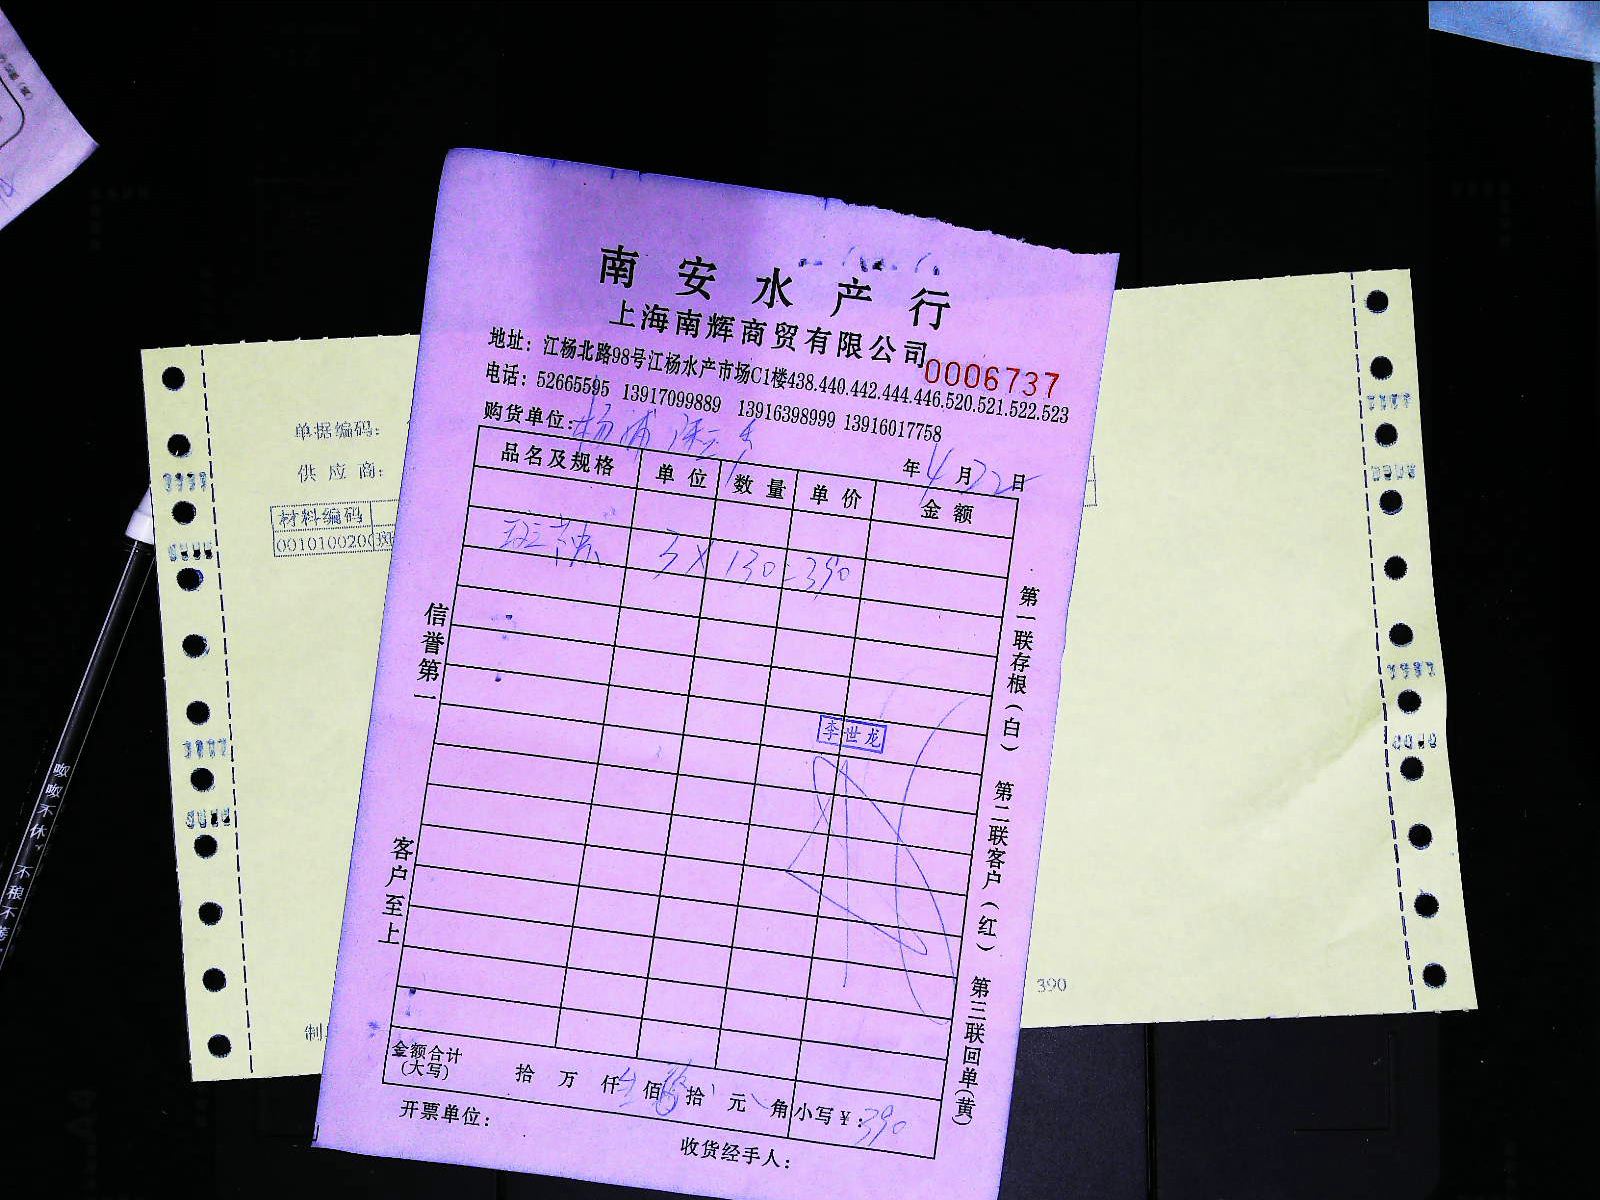 南安水产行
上海南辉商贸有限公司
0006737
地址：江杨北路98号江杨水产市场C1楼438.440.442.444.446.520.521.522.523
电话：52665595 13917099889 13916398999 13916017758
购货单位：杨浦
年4月22日
品名及规格 单位 数量 单价 金额
3 X 130=390
李世龙
信誉第一
客户至上
第一联存根（白） 第二联客户（红） 第三联回单（黄）
金额合计（大写） 拾 万 仟 佰 拾 元 角 小写￥：390
开票单位：
收货经手人：
单据编码：
供应商：
材料编码
00101002000
制
390
呶呶不休